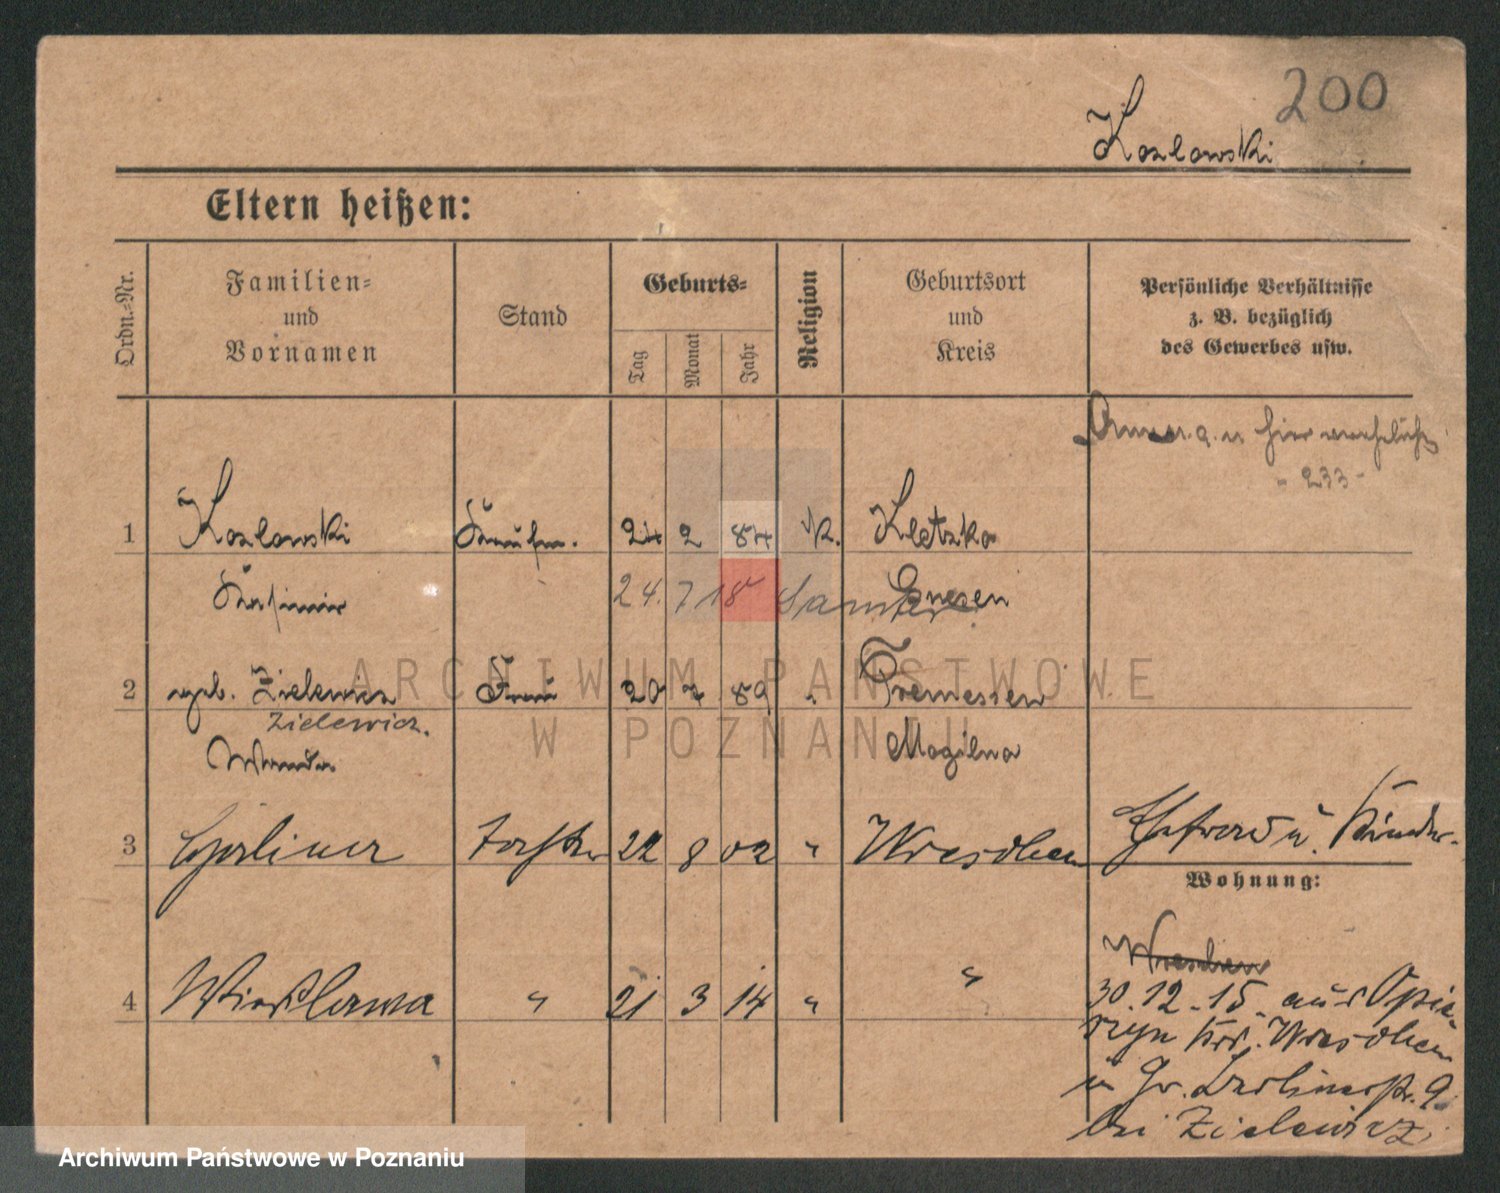 200
Kozlowski
Eltern heißen:
Ordn.-Nr.
Familien-
und
Vornamen
Stand
Geburts-
Tag
Monat
Jahr
Religion
Geburtsort
und
Kreis
Persönliche Verhältnisse
z. B. bezüglich
des Gewerbes usw.
- 233 -
1 Kozlowski Kaufm. 24 2 84 K. Kletzko
Kasimir 24. 7 18 Samter Gnesen
2 geb. Zielewicz Frau 20 7 89 " Tremessen
Zielewicz.
Wanda Mogilno
3 Tochter 22 8 02 " Wreschen Ehefrau u. Kinder
Wohnung:
Wreschen
4 Wieslawa " 21 3 14 " "
30.12.15. aus Opie-
szyn Krs. Wreschen
n Gr. Berlinerstr. 9
bei Zielewicz
ARCHIWUM PAŃSTWOWE
W POZNANIU
Archiwum Państwowe w Poznaniu